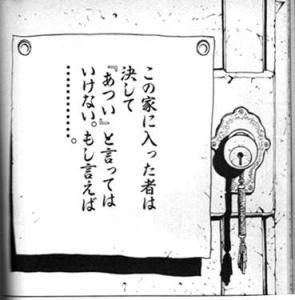 この家に入った者は
決して
『あつい』と言っては
いけない。もし言えば
…………。